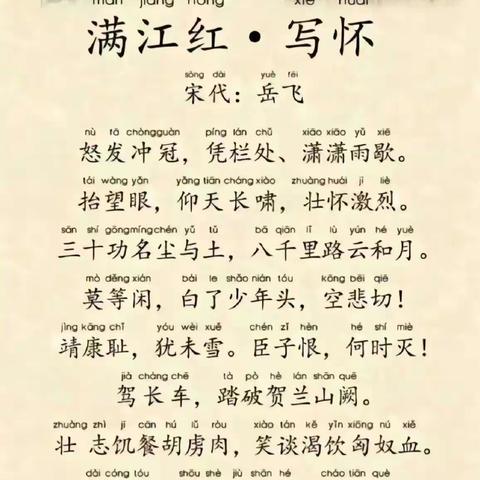 mǎn jiāng hóng xiě huái
满江红·写怀
sòng dài yuè fēi
宋代：岳飞
nù fā chòngguàn píng lán chǔ xiāo xiāo yǔ xiē
怒发冲冠，凭栏处、潇潇雨歇。
tái wàng yǎn yǎng tiān cháng xiào zhuàng huái jī liè
抬望眼，仰天长啸，壮怀激烈。
sān shí gōngmíng chén yǔ tǔ bā qiān lǐ lù yún hé yuè
三十功名尘与土，八千里路云和月。
mò děng xián bái le shǎo nián tóu kōng bēi qiē
莫等闲，白了少年头，空悲切！
jìng kāng chǐ yóu wèi xuě chén zǐ hèn hé shí miè
靖康耻，犹未雪。臣子恨，何时灭！
jià cháng chē tà pò hè lán shān quē
驾长车，踏破贺兰山阙。
zhuàng zhì jī cān hú lǔ ròu xiào tán kě yǐn xiōng nú xiě
壮 志饥餐胡虏肉，笑谈渴饮匈奴血。
dài cóng tóu shōu shè jiù shān hé cháo tiān què